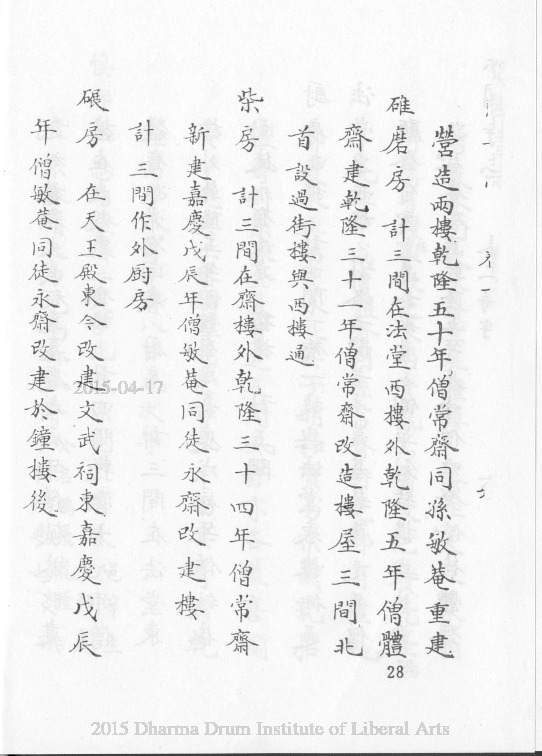 營造兩樓乾隆五十年僧常齋同孫敏菴重建
碓磨房 計三間在法堂西樓外乾隆五年僧體
齋建乾隆三十一年僧常齋改造樓屋三間北
首設過街樓與西樓通
柴房 計三間在齋樓外乾隆三十四年僧常齋
新建嘉慶戊辰年僧敏菴同徒永齋改建樓
計三間作外厨房
碾房 在天王殿東今改建文武祠東嘉慶戊辰
年僧敏菴同徒永齋改建於鐘樓後
28
2015-04-17
2015 Dharma Drum Institute of Liberal Arts